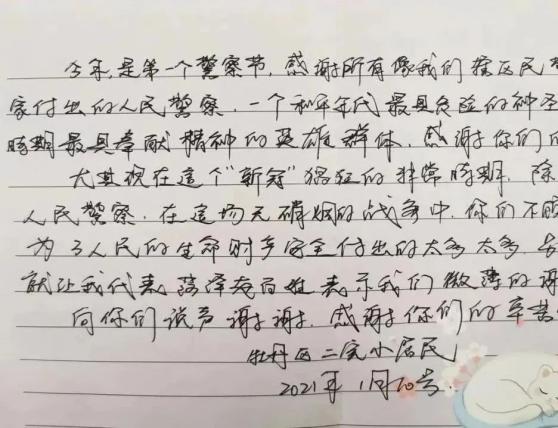 今年,是第一个警察节,感谢所有像我们辖区民警
家付出的人民警察.一个和平年代最具危险的神圣
时期最具奉献精神的英雄群体.感谢你们的
尤其现在这个"新冠"猖狂的非常时期.除
人民警察.在这场无硝烟的战争中.你们不顾
为了人民的生命财产安全付出的太多太多.
就让我代表菏泽老百姓表示我们微薄的谢
向你们说声谢谢.感谢你们的辛苦
牡丹区二完小居民
2021年1月10号.